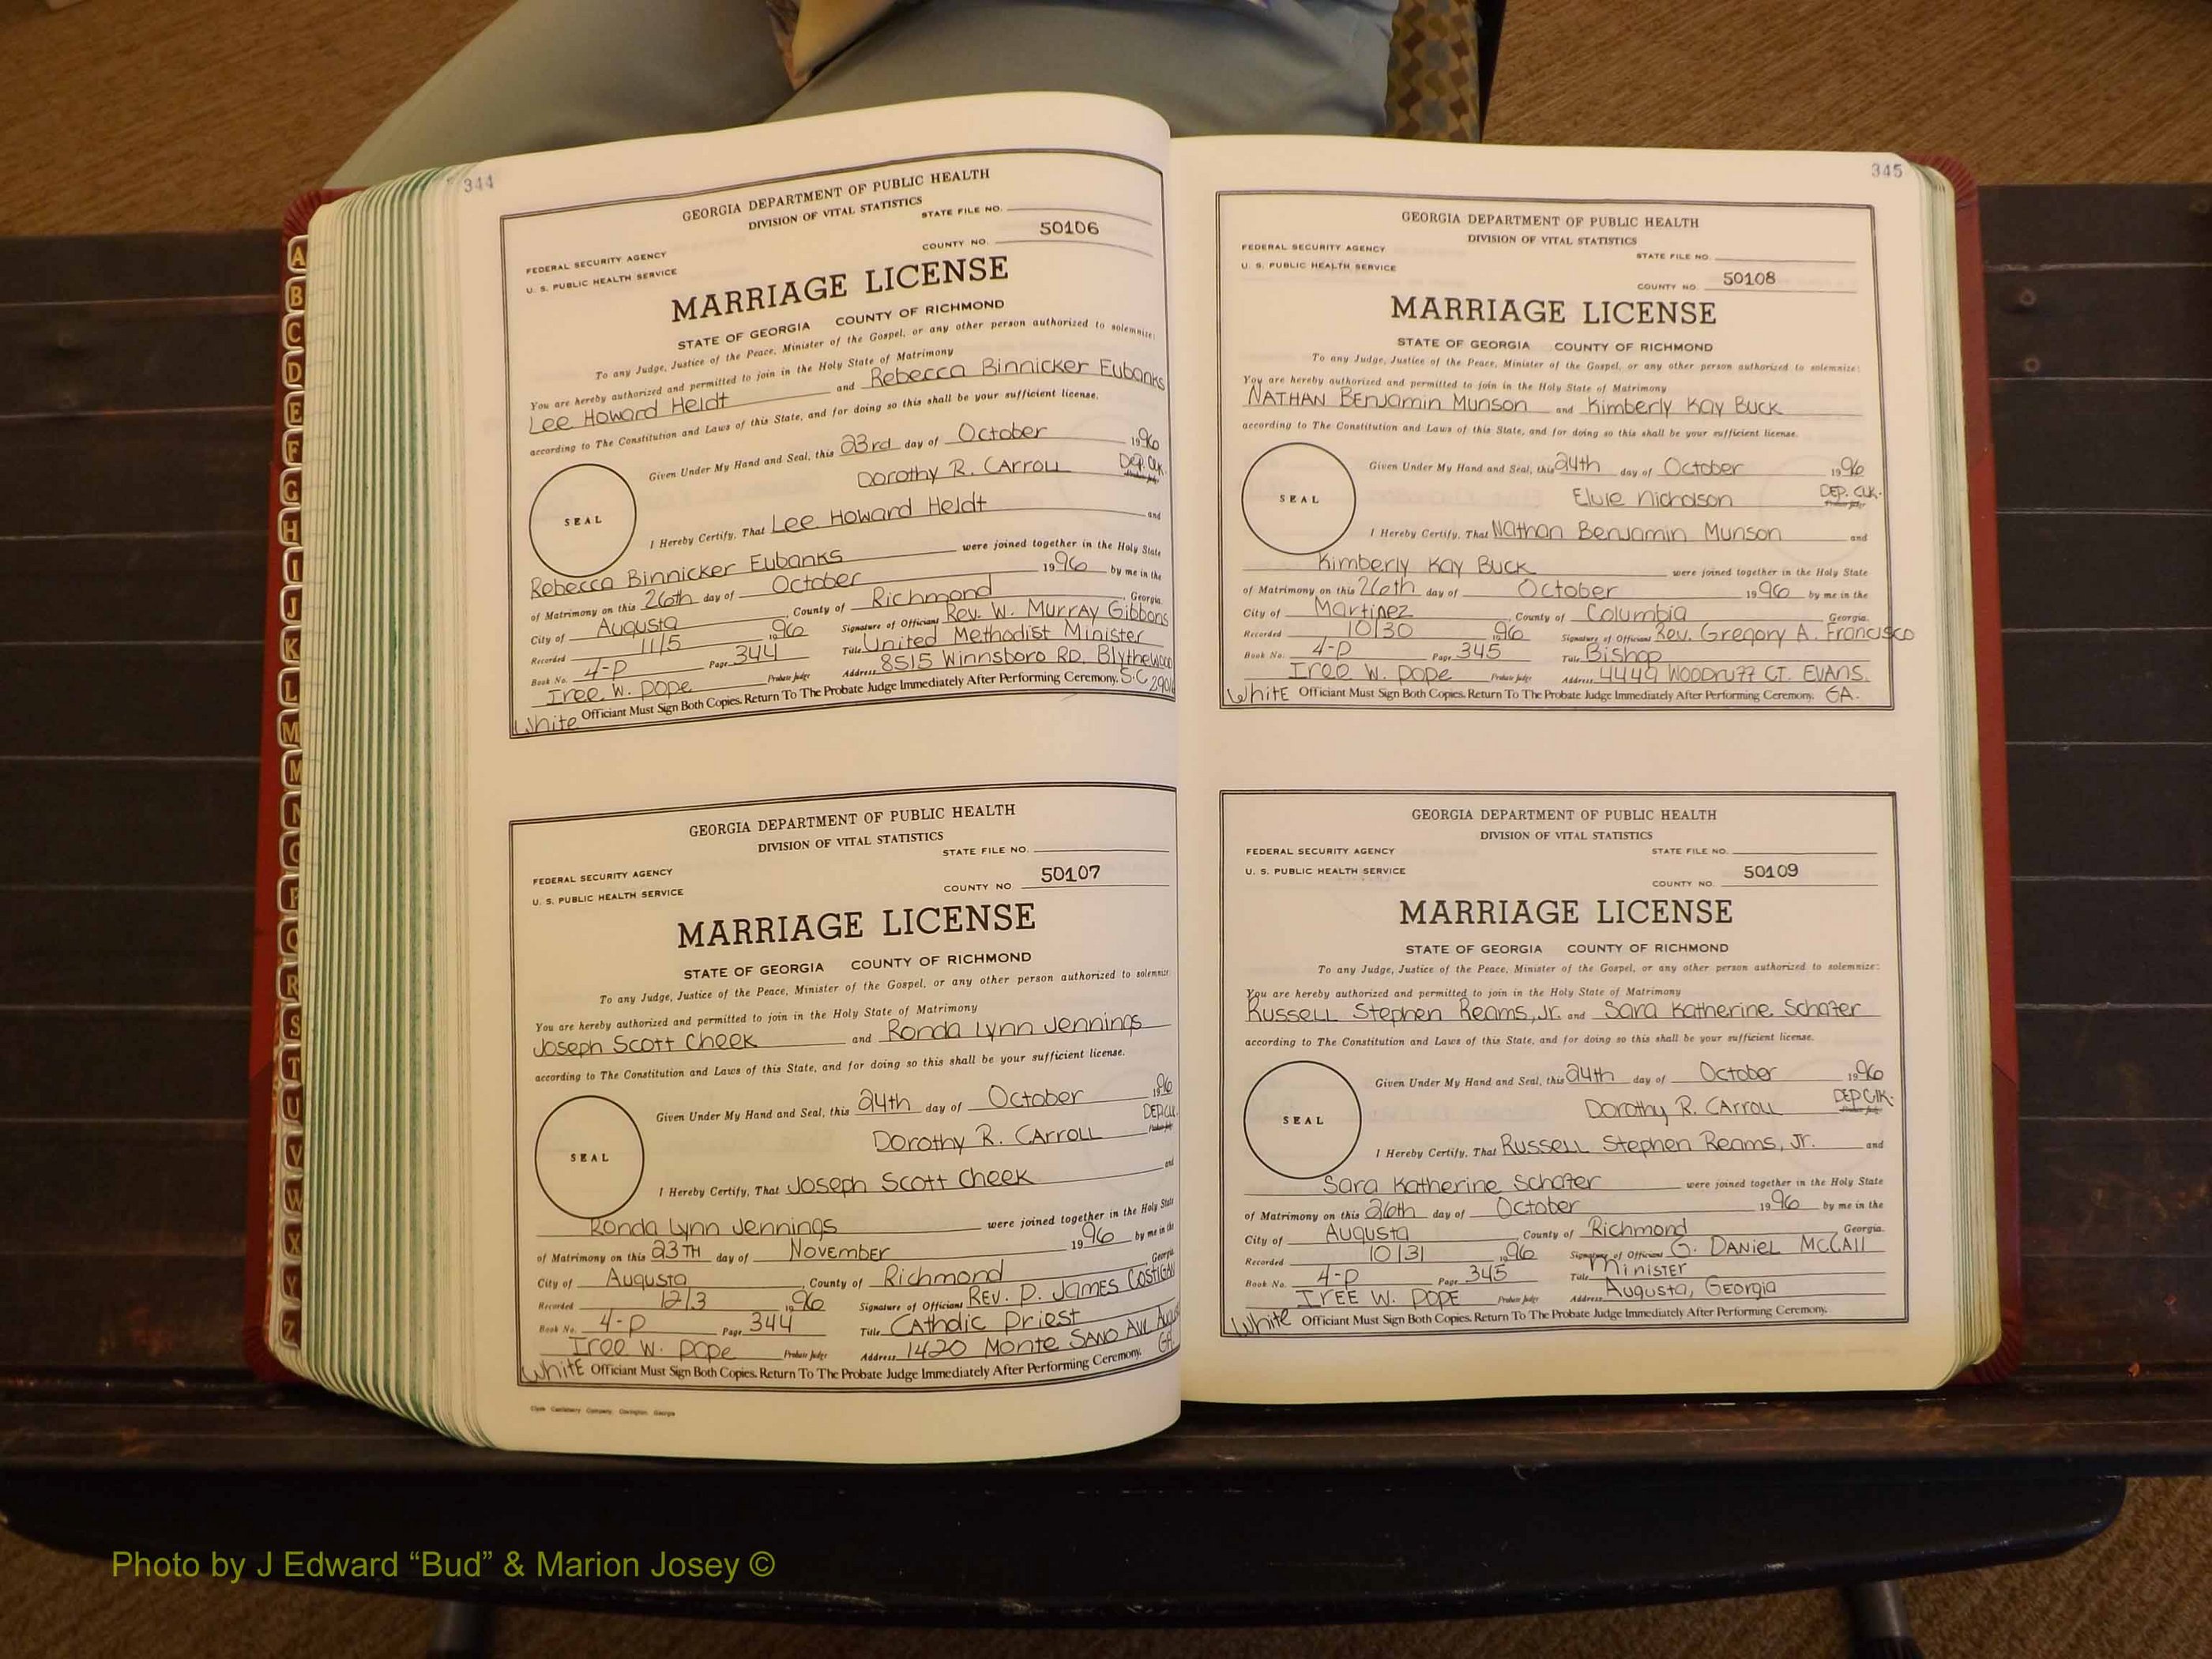 344
GEORGIA DEPARTMENT OF PUBLIC HEALTH
DIVISION OF VITAL STATISTICS
STATE FILE NO.
FEDERAL SECURITY AGENCY
COUNTY NO. 50106
U. S. PUBLIC HEALTH SERVICE
MARRIAGE LICENSE
STATE OF GEORGIA COUNTY OF RICHMOND
To any Judge, Justice of the Peace, Minister of the Gospel, or any other person authorized to solemnize:
You are hereby authorized and permitted to join in the Holy State of Matrimony
Lee Howard Heldt and Rebecca Binnicker Eubanks
according to The Constitution and Laws of this State, and for doing so this shall be your sufficient license.
Given Under My Hand and Seal, this 23rd day of October 1996
Dorothy R. Carroll Dep. Clk.
SEAL
I Hereby Certify, That Lee Howard Heldt and
Rebecca Binnicker Eubanks were joined together in the Holy State
of Matrimony on this 26th day of October 1996 by me in the
City of Augusta, County of Richmond, Georgia.
Recorded 11/5 1996 Signature of Officiant Rev. W. Murray Gibbons
Book No. 4-P Page 344 Title United Methodist Minister
Iree W. Pope Probate Judge Address 8515 Winnsboro RD. Blythewood
S.C
White Officiant Must Sign Both Copies. Return To The Probate Judge Immediately After Performing Ceremony.
GEORGIA DEPARTMENT OF PUBLIC HEALTH
DIVISION OF VITAL STATISTICS
STATE FILE NO.
FEDERAL SECURITY AGENCY
COUNTY NO 50107
U. S. PUBLIC HEALTH SERVICE
MARRIAGE LICENSE
STATE OF GEORGIA COUNTY OF RICHMOND
To any Judge, Justice of the Peace, Minister of the Gospel, or any other person authorized to solemnize:
You are hereby authorized and permitted to join in the Holy State of Matrimony
Joseph Scott Cheek and Ronda Lynn Jennings
according to The Constitution and Laws of this State, and for doing so this shall be your sufficient license.
Given Under My Hand and Seal, this 24th day of October 1996
Dorothy R. Carroll DEP. CLK
SEAL
I Hereby Certify, That Joseph Scott Cheek and
Ronda Lynn Jennings were joined together in the Holy State
of Matrimony on this 23TH day of November 1996 by me in the
City of Augusta, County of Richmond Georgia
Recorded 12/3 1996 Signature of Officiant REV. P. JAMES COSTIGAN
Book No. 4-P Page 344 Title CAtholic Priest
Iree W. Pope Probate Judge Address 1420 Monte SANO AVE August
GA
WhitE Officiant Must Sign Both Copies. Return To The Probate Judge Immediately After Performing Ceremony.
345
GEORGIA DEPARTMENT OF PUBLIC HEALTH
DIVISION OF VITAL STATISTICS
FEDERAL SECURITY AGENCY
STATE FILE NO.
U. S. PUBLIC HEALTH SERVICE
COUNTY NO. 50108
MARRIAGE LICENSE
STATE OF GEORGIA COUNTY OF RICHMOND
To any Judge, Justice of the Peace, Minister of the Gospel, or any other person authorized to solemnize:
You are hereby authorized and permitted to join in the Holy State of Matrimony
NATHAN BENJamin Munson and Kimberly Kay Buck
according to The Constitution and Laws of this State, and for doing so this shall be your sufficient license.
Given Under My Hand and Seal, this 24th day of October 1996
Elvie Nicholson DEP. CLK.
SEAL
I Hereby Certify, That Nathan Benjamin Munson and
Kimberly Kay Buck were joined together in the Holy State
of Matrimony on this 26th day of October 1996 by me in the
City of Martinez, County of Columbia Georgia.
Recorded 10/30 1996 Signature of Officiant Rev. Gregory A. Francisco
Book No. 4-P Page 345 Title Bishop
Iree W. Pope Probate Judge Address 4449 WOODruff CT. EVANS.
WhitE Officiant Must Sign Both Copies. Return To The Probate Judge Immediately After Performing Ceremony. GA.
GEORGIA DEPARTMENT OF PUBLIC HEALTH
DIVISION OF VITAL STATISTICS
FEDERAL SECURITY AGENCY STATE FILE NO.
U. S. PUBLIC HEALTH SERVICE
COUNTY NO. 50109
MARRIAGE LICENSE
STATE OF GEORGIA COUNTY OF RICHMOND
To any Judge, Justice of the Peace, Minister of the Gospel, or any other person authorized to solemnize:
You are hereby authorized and permitted to join in the Holy State of Matrimony
Russell Stephen Reams, Jr. and Sara Katherine Schafer
according to The Constitution and Laws of this State, and for doing so this shall be your sufficient license.
Given Under My Hand and Seal, this 24th day of October 1996
Dorothy R. Carroll DEP Clk.
SEAL
I Hereby Certify, That Russell Stephen Reams, Jr. and
Sara Katherine Schafer were joined together in the Holy State
of Matrimony on this 26th day of October 1996 by me in the
City of Augusta, County of Richmond Georgia.
Recorded 10/31 1996 Signature of Officiant G. DANiEL MCCAll
Book No. 4-P Page 345 Title MiniSTER
IREE W. POPE Probate Judge Address Augusta, Georgia
White Officiant Must Sign Both Copies. Return To The Probate Judge Immediately After Performing Ceremony.
A
B
C
D
E
F
G
H
I
J
K
L
M
M
N
O
P
Q
R
S
T
U
V
W
X
Y
Z
Photo by J Edward “Bud” & Marion Josey ©